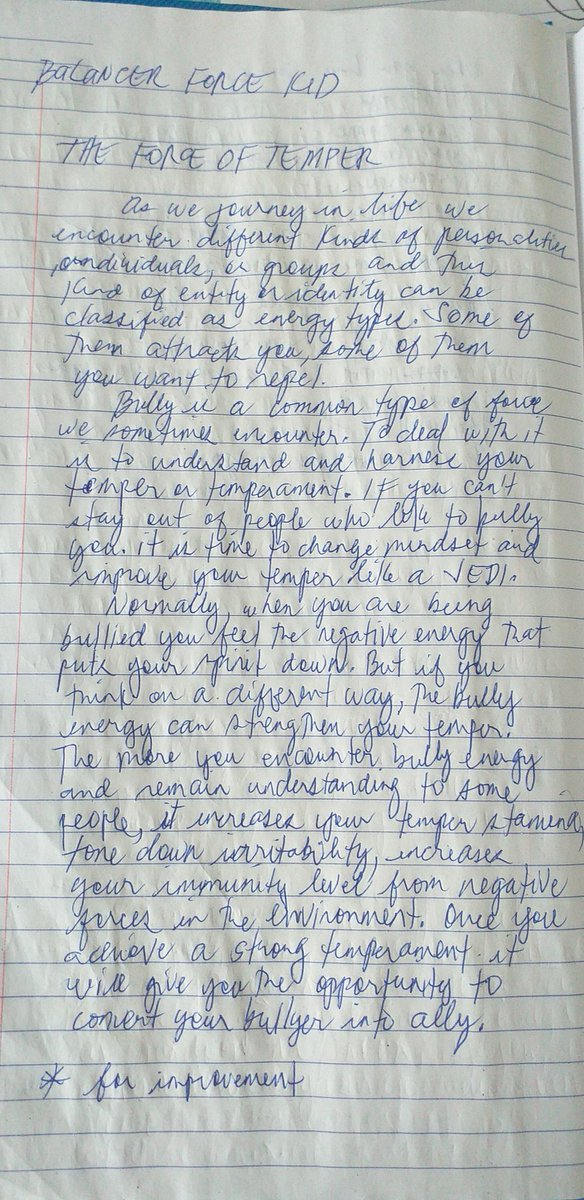 BALANCER FORCE KID
THE FORCE OF TEMPER
As we journey in life we
encounter different kinds of personalities
individuals, or groups and this
kind of entity or identity can be
classified as energy types. Some of
them attracts you, some of them
you want to repel.
Bully is a common type of force
we sometimes encounter. To deal with it
is to understand and harness your
temper or temperament. IF you can't
stay out of people who love to bully
you. it is time to change mindset and
improve your temper like a JEDI.
Normally, when you are being
bullied you feel the negative energy that
puts your spirit down. But if you
think on a different way, the bully
energy can strengthen your temper.
The more you encounter bully energy
and remain understanding to some
people, it increases your temper stamina,
tone down irritability, increases
your immunity level from negative
forces in the environment. Once you
achieve a strong temperament it
will give you the opportunity to
convert your bullyer into ally.
* for improvement